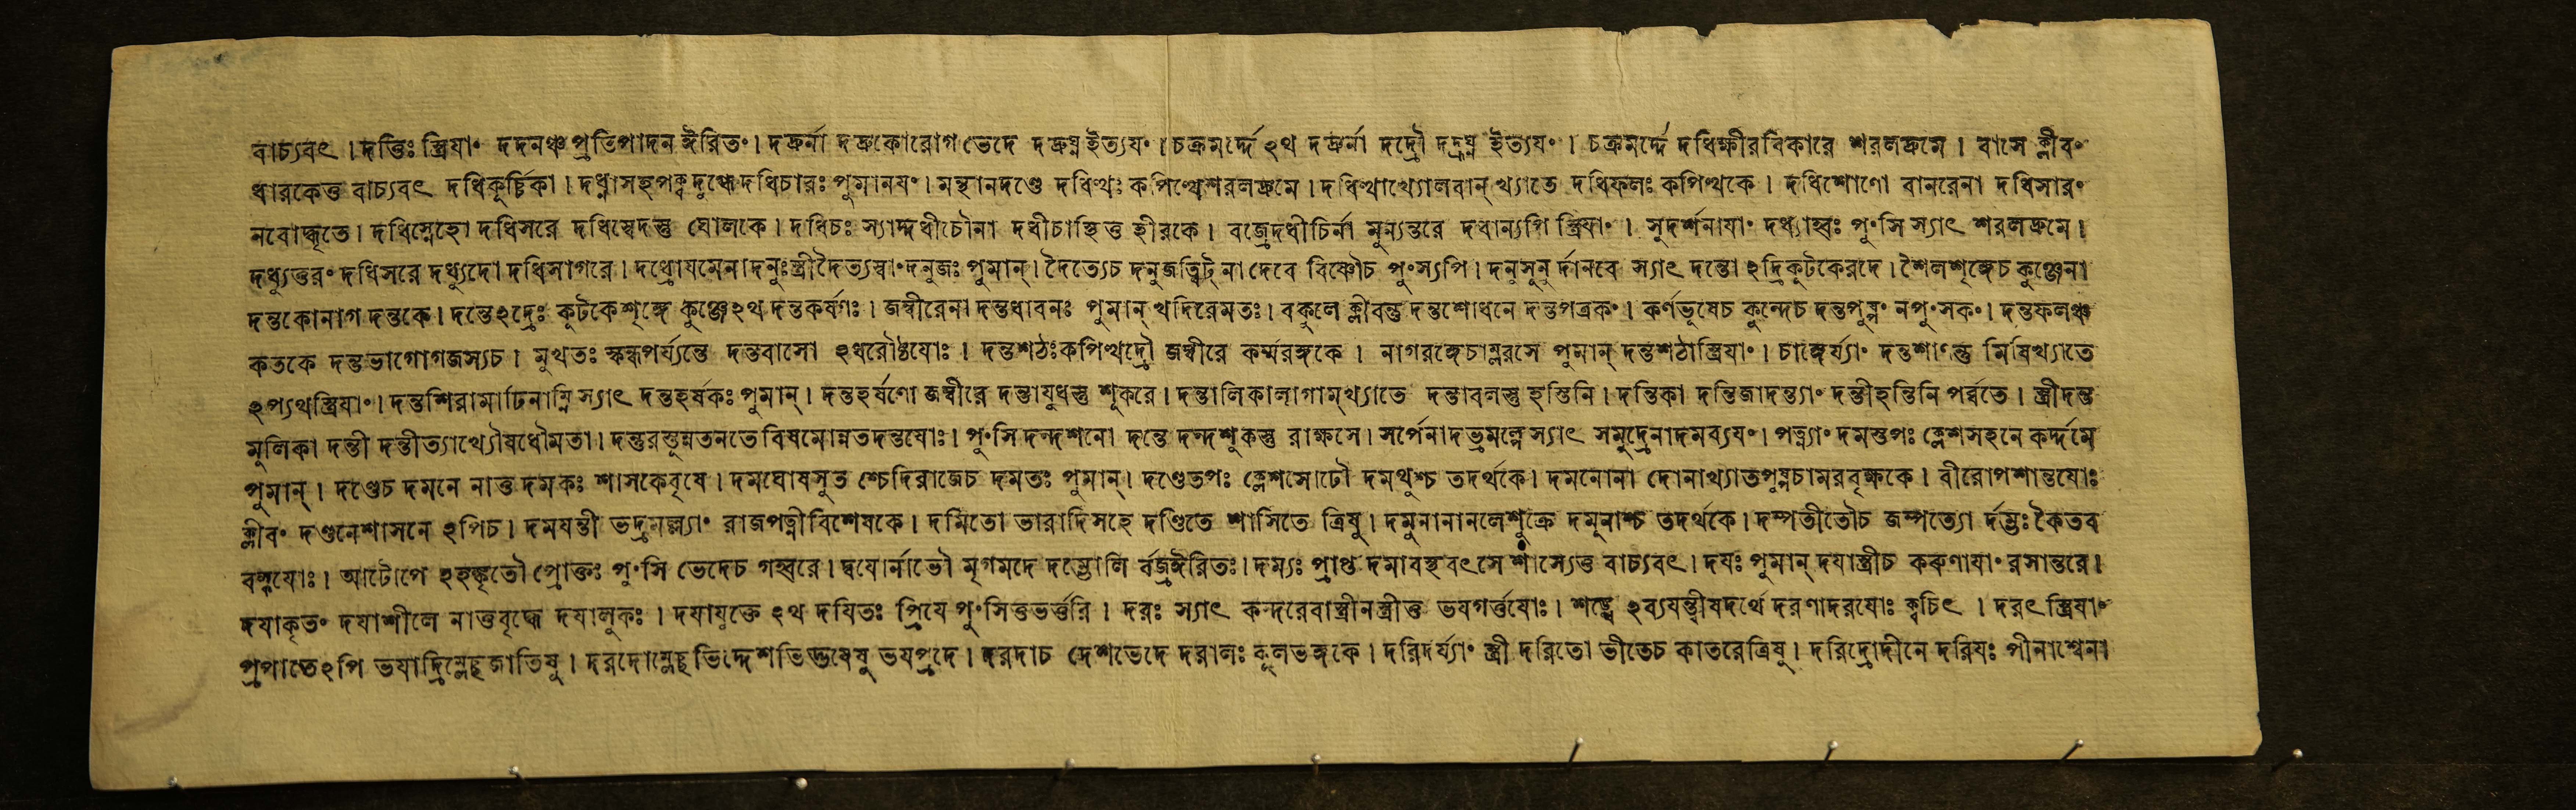 বাচ্যবৎ । দত্তিঃ স্ত্রিযা॰ দদনঞ্চ প্রতিপাদন ঈরিত॰ । দদ্রুর্না দদ্রুকোরোগ ভেদে দদ্রুঘ্ন ইত্যয॰ । চক্রমর্দ্দে ঽথ দদ্রুর্না দদ্রৌ দদ্রুঘ্ন ইত্যয॰ । চক্রমর্দ্দে দধিক্ষীরবিকারে শরলদ্রুমে । বাসে ক্লীব॰
ধারকেত্ত বাচ্যবৎ দধিকূর্চ্চিকা । দধ্নাসহপক্বদুগ্ধে দধিচারঃ পুমানয॰ । মন্থানদণ্ডে দধিত্থঃ কপিত্থেশরলদ্রুমে । দধিত্থাখ্যোলবান্ খ্যাতে দধিফলঃ কপিত্থকে । দধিশোণো বানরেনা দধিসার॰
নবোদ্ধৃতে । দধিস্নেহো দধিসরে দধিস্বেদস্তু ঘোলকে । দধিচঃ স্যাদ্দধীচৌনা দধীচাস্থিত্ত হীরকে । বজ্রেদধীচির্না মুন্যন্তরে দধান্যপি স্ত্রিযা॰ । সুদর্শনাযা॰ দধ্যাহ্বঃ পু॰সি স্যাৎ শরলদ্রুমে ।
দধ্যুত্তর॰ দধিসরে দধ্যুদো দধিসাগরে । দধ্রোযমেনাদনুঃস্ত্রীদৈত্যস্বা॰দনুজঃ পুমান্ । দৈত্যেচ দনুজদ্বিট্ না দেবে বিষ্ণৌচ পু॰স্যপি । দনুসুনু র্দানবে স্যাৎ দন্তো ঽদ্রিকুটকেরদে । শৈলশৃঙ্গেচ কুঞ্জেনা
দন্তকোনাগ দন্তকে । দন্তেঽদ্রেঃ কুটকেশৃঙ্গে কুঞ্জেঽথ দন্তকর্ষণঃ । জম্বীরেনা দন্তধাবনঃ পুমান্ খদিরেমতঃ । বকুলে ক্লীবন্তু দন্তশোধনে দন্তপত্রক॰ । কর্ণভূষেচ কুন্দেচ দন্তপুষ্প॰ নপু॰সক॰ । দন্তফলঞ্চ
কতকে দন্তভাগোগজস্যচ । মুখতঃ স্কন্ধপর্য্যন্তে দন্তবাসো ঽধরৌষ্ঠযোঃ । দন্তশঠঃকপিত্থদ্রৌ জম্বীরে কর্ম্মরঙ্গকে । নাগরঙ্গেচাম্লরসে পুমান্ দন্তশঠাস্ত্রিযা॰ । চাঙ্গের্য্যা॰ দন্তশাণস্তু মিষিখ্যাতে
ঽপ্যথস্ত্রিযা॰ । দন্তশিরামাঢিনাম্নি স্যাৎ দন্তহর্ষকঃ পুমান্ । দন্তহর্ষণো জম্বীরে দন্তাযুধস্তু শূকরে । দন্তালিকালাগামখ্যাতে দন্তাবলস্তু হস্তিনি । দন্তিকা দন্তিজাদন্ত্যা॰ দন্তীহস্তিনি পর্ব্বতে । স্ত্রীদন্ত
মুলিকা দন্তী দন্তীত্যাখ্যৌষধৌমতা । দন্তুরস্তুন্নতনতে বিষমোন্নতদন্তযোঃ । পু॰সি দন্দশনো দন্তে দন্দশুকস্তু রাক্ষসে । সর্পেনাদভ্রমল্পেস্যাৎ সমুদ্রেনাদমব্যয॰ । পত্ন্যা॰ দমস্তপঃ ক্লেশসহনে কর্দ্দমে
পুমান্ । দণ্ডেচ দমনে নাত্ত দমকঃ শাসকেবৃষে । দমঘোষসুত শ্চেদিরাজেচ দমতঃ পুমান্ । দণ্ডেতপঃ ক্লেশসোঢৌ দমথুশ্চ তদর্থকে । দমনোনা দোনাখ্যাতপুষ্পচামরবৃক্ষকে । বীরোপশান্তযোঃ
ক্লীব॰ দণ্ডনেশাসনে ঽপিচ । দমযন্তী ভদ্রমল্ল্যা॰ রাজপত্নীবিশেষকে । দমিতো ভারাদিসহে দণ্ডিতে শাসিতে ত্রিষু । দমুনানানলেশুক্রে দমুনাশ্চ তদর্থকে । দম্পতীতৌচ জম্পত্যো র্দম্ভঃ কৈতব
বল্কযোঃ । আটোপে ঽহঙ্কৃতৌ প্রোক্তঃ পু॰সি ভেদেচ গহ্বরে । দ্বযোর্নাভৌ মৃগমদে দম্ভোলি র্বজ্রঈরিতঃ । দম্যঃ প্রাপ্ত দমাবস্থবৎসে শাস্যেত্ত বাচ্যবৎ । দযঃ পুমান্ দযাস্ত্রীচ করুণাযা॰ রসান্তরে ।
দযাকৃত॰ দযাশীলে নাত্তবৃদ্ধে দযালুকঃ । দযাযুক্তে ঽথ দযিতঃ প্রিযে পু॰সিত্তভর্ত্তরি । দরঃ স্যাৎ কন্দরেবাস্ত্রীনস্ত্রীত্ত ভযগর্ত্তযোঃ । শঙ্খে ঽব্যযন্ত্বীষদর্থে দরণাদরযোঃ ক্বচিৎ । দরৎ স্ত্রিযা॰
প্রপাতেঽপি ভযাদ্রিম্লেচ্ছজাতিষু । দরদোম্লেচ্ছভিদ্দেশভিত্তবেষু ভযপ্রদে । দরদাচ দেশভেদে দরালঃ কূলভঙ্গকে । দরিদর্য্যা॰ স্ত্রী দরিতো ভীতেচ কাতরেত্রিষু । দরিদ্রোদীনে দরিযঃ পীনাশ্বেনা